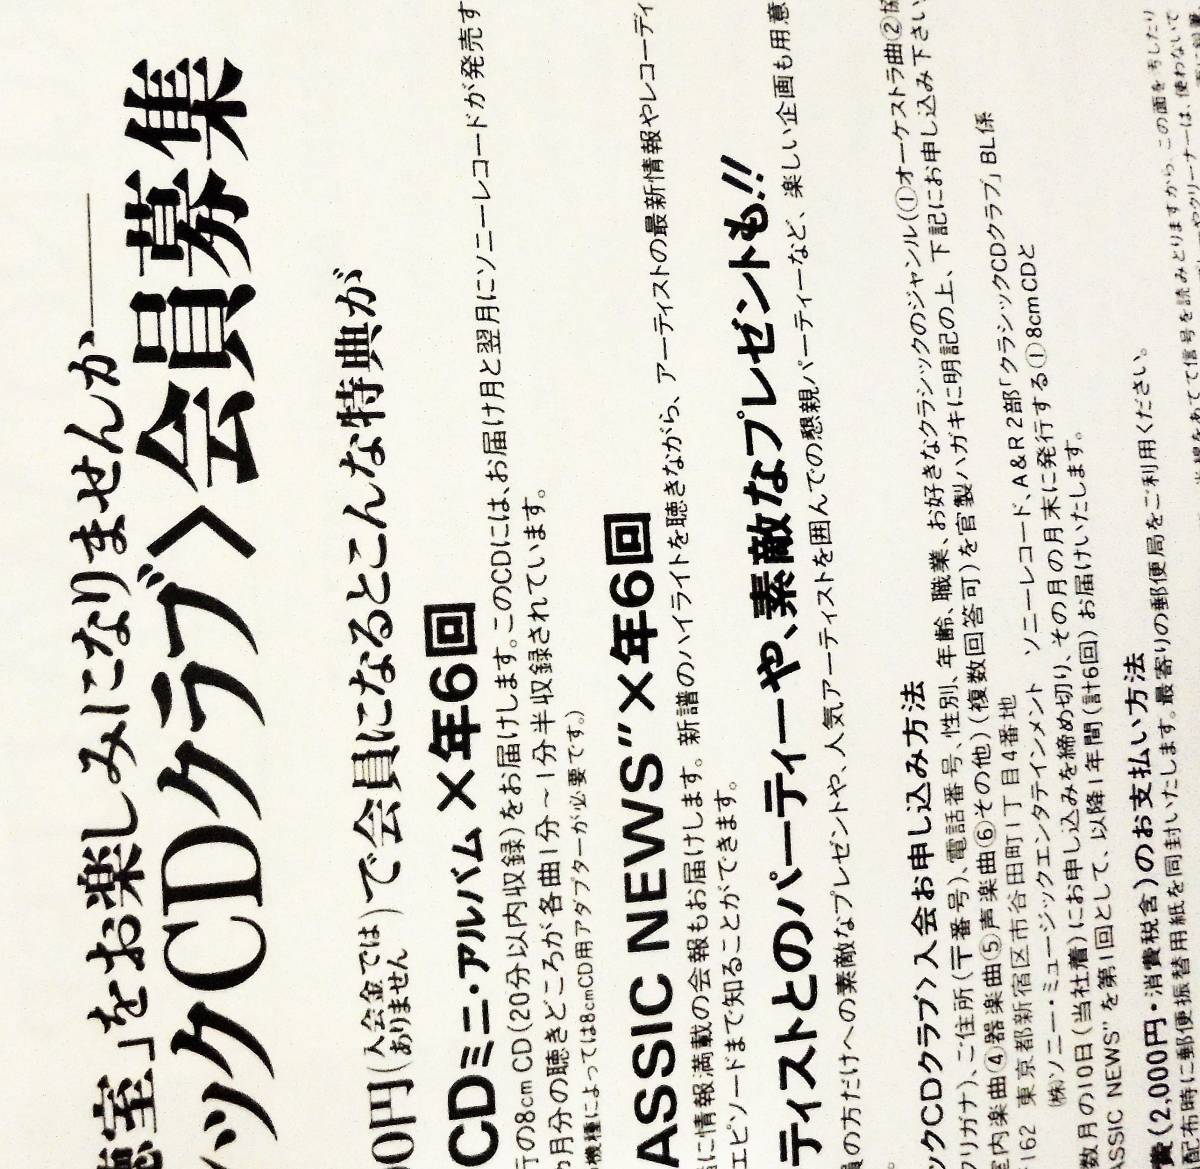 聴室」をお楽しみになりませんか
ックCDクラブ〉会員募集
00円(入会金ではありません)で会員になるとこんな特典が
CDミニ・アルバム×年6回
行の8cmCD(20分以内収録)をお届けします。このCDには、お届け月と翌月にソニーレコードが発売す
カ月分の聴きどころが各曲1分～1分半収録されています。
機種によっては8cmCD用アダプターが必要です。)
ASSIC NEWS"×年6回
に情報満載の会報もお届けします。新譜のハイライトを聴きながら、アーティストの最新情報やレコーディ
エピソードまで知ることができます。
ティストとのパーティーや、素敵なプレゼントも!!
員の方だけへの素敵なプレゼントや、人気アーティストを囲んでの懇親パーティーなど、楽しい企画も用意
。
ックCDクラブ〉入会お申し込み方法
フリガナ)、ご住所(〒番号)、電話番号、性別、年齢、職業、お好きなクラシックのジャンル(①オーケストラ曲②協
室内楽曲④器楽曲⑤声楽曲⑥その他)(複数回答可)を官製ハガキに明記の上、下記にお申し込み下さい
162 東京都新宿区市谷田町1丁目4番地
㈱ソニー・ミュージックエンタテインメント ソニーレコード、A&R2部「クラシックCDクラブ」BL係
数月の10日(当社着)にお申し込みを締め切り、その月の月末に発行する①8cmCDと
ASSIC NEWS"を第1回として、以降1年間(計6回)お届けいたします。
費(2,000円・消費税含)のお支払い方法
配布時に郵便振替用紙を同封いたします。最寄りの郵便局をご利用ください。
線をあてて信号を読みとりますから、この面を汚したり
クリーナーは、使わないで